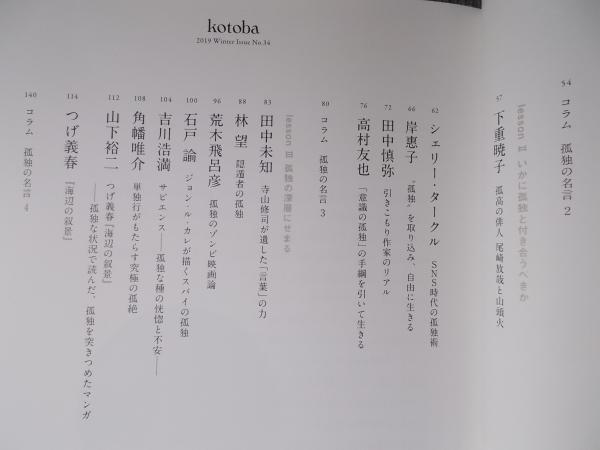 kotoba
2019 Winter Issue No.34
54 コラム 孤独の名言 2
lesson II いかに孤独と付き合うべきか
57 下重暁子 孤高の俳人 尾崎放哉と山頭火
62 シェリー・タークル SNS時代の孤独術
66 岸惠子 “孤独”を取り込み、自由に生きる
72 田中慎弥 引きこもり作家のリアル
76 高村友也 「意識の孤独」の手綱を引いて生きる
80 コラム 孤独の名言 3
lesson III 孤独の深層にせまる
83 田中未知 寺山修司が遺した「言葉」の力
88 林望 隠遁者の孤独
96 荒木飛呂彦 孤独のゾンビ映画論
100 石戸諭 ジョン・ル・カレが描くスパイの孤独
104 吉川浩満 サピエンス――孤独な種の恍惚と不安――
108 角幡唯介 単独行がもたらす究極の孤絶
112 山下裕二 つげ義春『海辺の叙景』
――孤独な状況で読んだ、孤独を突きつめたマンガ
114 つげ義春 『海辺の叙景』
140 コラム 孤独の名言 4